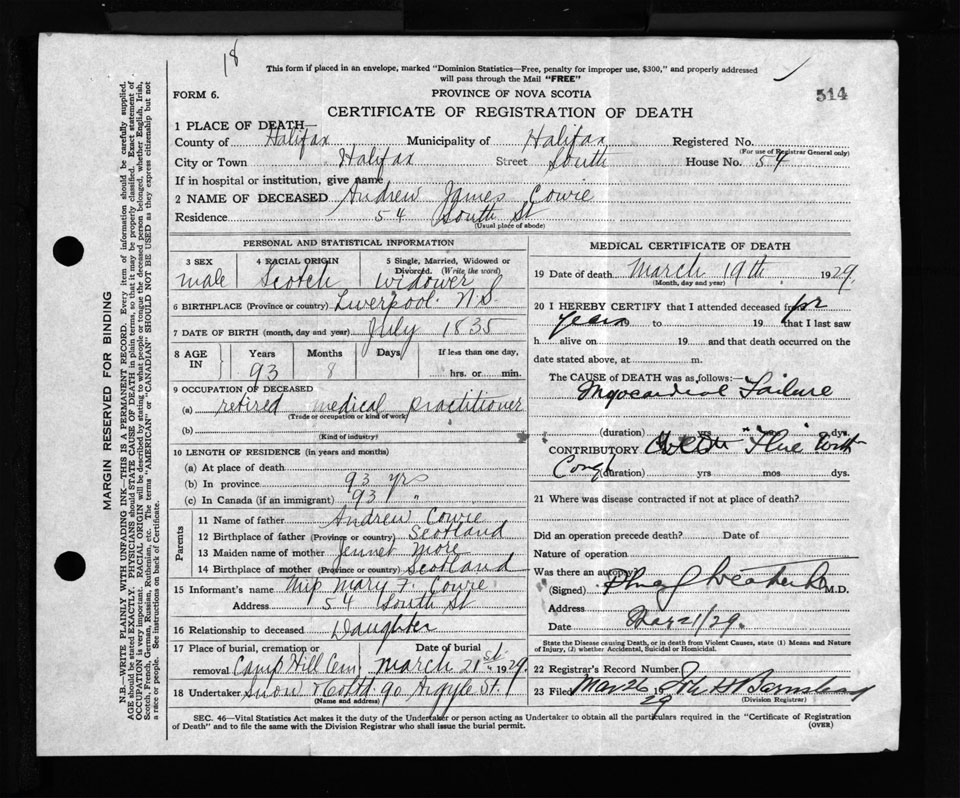 18
This form if placed in an envelope, marked "Dominion Statistics—Free, penalty for improper use, $300," and properly addressed
will pass through the Mail "FREE"
514
FORM 6.
PROVINCE OF NOVA SCOTIA
CERTIFICATE OF REGISTRATION OF DEATH
1 PLACE OF DEATH
County of Halifax Municipality of Halifax Registered No.
(For use of Registrar General only)
City or Town Halifax Street South House No. 54
If in hospital or institution, give name
2 NAME OF DECEASED Andrew James Cowie
Residence 54 South St
(Usual place of abode)
MARGIN RESERVED FOR BINDING
N.B.—WRITE PLAINLY WITH UNFADING INK—THIS IS A PERMANENT RECORD. Every item of information should be carefully supplied.
AGE should be stated EXACTLY. PHYSICIANS should STATE CAUSE OF DEATH in plain terms, so that it may be properly classified. Exact statement of
OCCUPATION is very important. RACIAL ORIGIN will be described by stating to what people or tongue the deceased person belonged, whether English, Irish,
Scotch, French, German, Russian, Ruthenian, etc. The terms "AMERICAN" or "CANADIAN" SHOULD NOT BE USED as they express citizenship but not
a race or people. See instructions on back of Certificate.
PERSONAL AND STATISTICAL INFORMATION
3 SEX male
4 RACIAL ORIGIN Scotch
5 Single, Married, Widowed or
Divorced. (Write the word)
widower
6 BIRTHPLACE (Province or country) Liverpool. N.S.
7 DATE OF BIRTH (month, day and year) July 1835
8 AGE IN
Years 93
Months 8
Days
If less than one day,
hrs. or min.
9 OCCUPATION OF DECEASED
(a) retired medical practitioner
(Trade or occupation or kind of work)
(b)
(Kind of industry)
10 LENGTH OF RESIDENCE (in years and months)
(a) At place of death
(b) In province 93 yrs
(c) In Canada (if an immigrant) 93 "
Parents
11 Name of father Andrew Cowie
12 Birthplace of father (Province or country) Scotland
13 Maiden name of mother Jennet More
14 Birthplace of mother (Province or country) Scotland
15 Informant's name Miss Mary F. Cowie
Address 54 South St
16 Relationship to deceased Daughter
17 Place of burial, cremation or Date of burial
removal Camp Hill Cem March 21st 1929
18 Undertaker Snow & Co Ltd 90 Argyle St.
(Name and address)
MEDICAL CERTIFICATE OF DEATH
19 Date of death March 19th 1929.
(Month, day and year)
20 I HEREBY CERTIFY that I attended deceased from for
years to 19 that I last saw
h alive on 19 and that death occurred on the
date stated above, at m.
The CAUSE of DEATH was as follows:
Myocardial Failure
(duration) yrs mos. dys.
CONTRIBUTORY "Flue" with
Cough (duration) yrs mos dys.
21 Where was disease contracted if not at place of death?
Did an operation precede death? Date of
Nature of operation
Was there an autopsy
(Signed) M.D.
Address
Date Mar 21/29.
State the Disease causing Death, or in death from Violent Causes, state (1) Means and Nature
of Injury, (2) whether Accidental, Suicidal or Homicidal.
22 Registrar's Record Number
23 Filed Mar 26 1929
(Division Registrar)
SEC. 46—Vital Statistics Act makes it the duty of the Undertaker or person acting as Undertaker to obtain all the particulars required in the "Certificate of Registration
of Death" and to file the same with the Division Registrar who shall issue the burial permit.
(OVER)